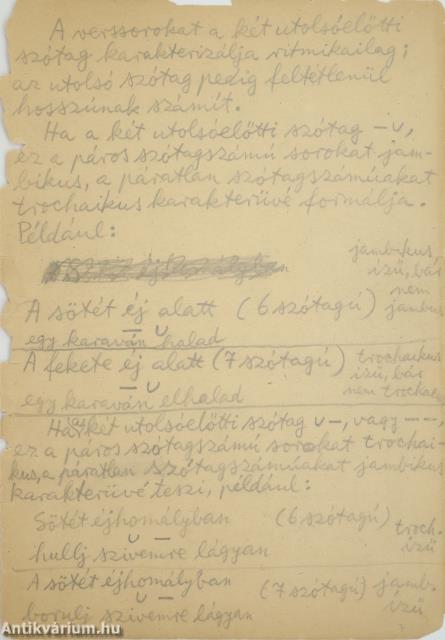 A verssorokat a két utolsóelőtti
szótag karakterizálja ritmikailag;
az utolsó szótag pedig feltétlenül
hosszúnak számít.
Ha a két utolsóelőtti szótag – ∪,
ez a páros szótagszámú sorokat jam-
bikus, a páratlan szótagszámúakat
trochaikus karakterűvé formálja.
Például:
A sötét éj alatt (6 szótagú)
egy karaván halad
jambikus
izü, bár
nem
jambus
A fekete éj alatt (7 szótagú)
egy karaván elhalad
trochaikus
izü, bár
nem
Ha a két utolsóelőtti szótag ∪ –, vagy – –,
ez a páros szótagszámú sorokat trochai-
kus, a páratlan szótagszámúakat jambikus
karakterüvé teszi, például:
Sötét éjhomályban (6 szótagú)
hullj szivemre lágyan
troch.
izü
A sötét éjhomályban (7 szótagú)
borulj szivemre lágyan
jamb.
izü
Antikvárium.hu